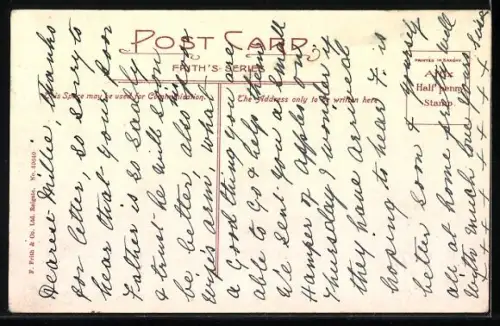 POST CARD
FRITH'S SERIES
This Space may be used for Communication.
The Address only to be written here.
PRINTED IN SAXONY
Affix
Half penny
Stamp
F. Frith & Co. Ltd. Reigate. No.
Dearest Millie, Thanks
for letter, so sorry to
hear that your poor
Father is so badly
& trust he will soon
be better, also
arm, what
a good thing you are
able to go & help her
We sent you a small
Hamper of apples on
Thursday I wonder if
they have arrived
hoping to hear F. is
better soon & yourself
all at home are well
With much love yours